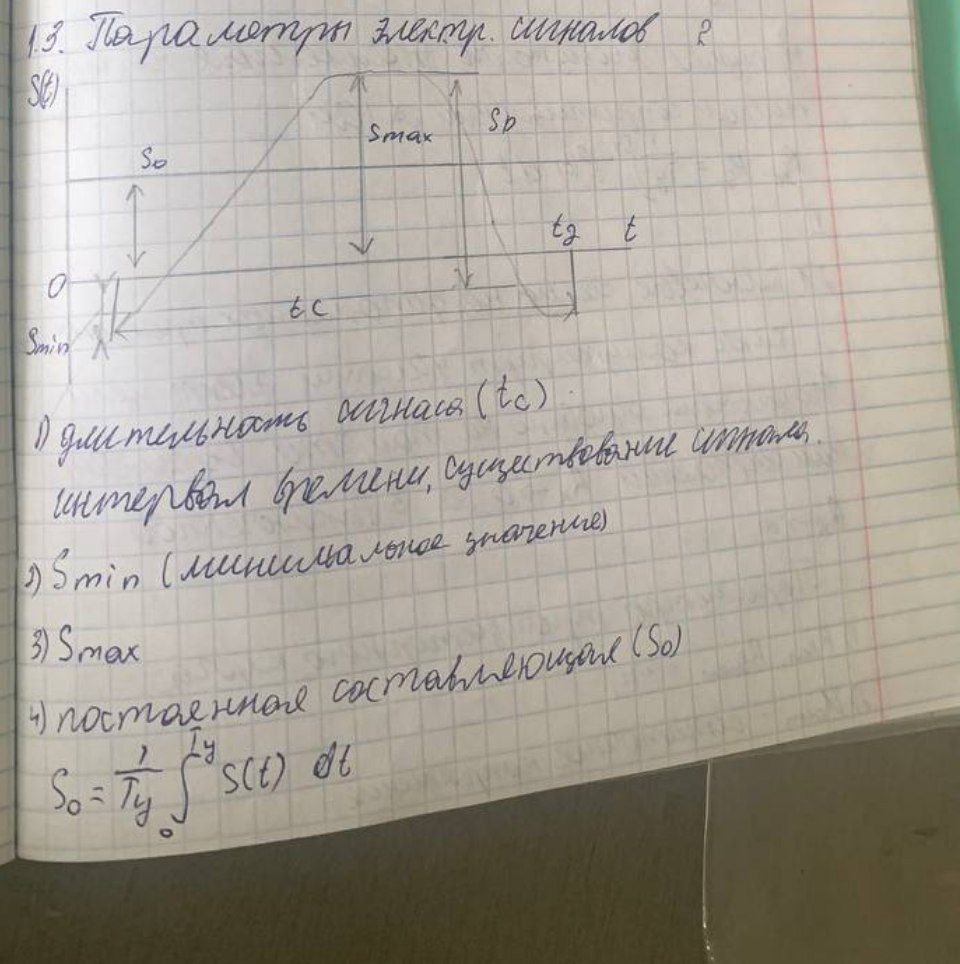 1.3. Параметры электр. сигналов 2
S(t)
Smax
Sp
S₀
t₂ t
0
tc
Smin
1) длительность сигнала (tc)
интервал времени, существование сигнала.
2) Smin (минимальное значение)
3) Smax
4) постоянная составляющая (S₀)
S₀ = 1/Ty ∫₀^Ty S(t) dt